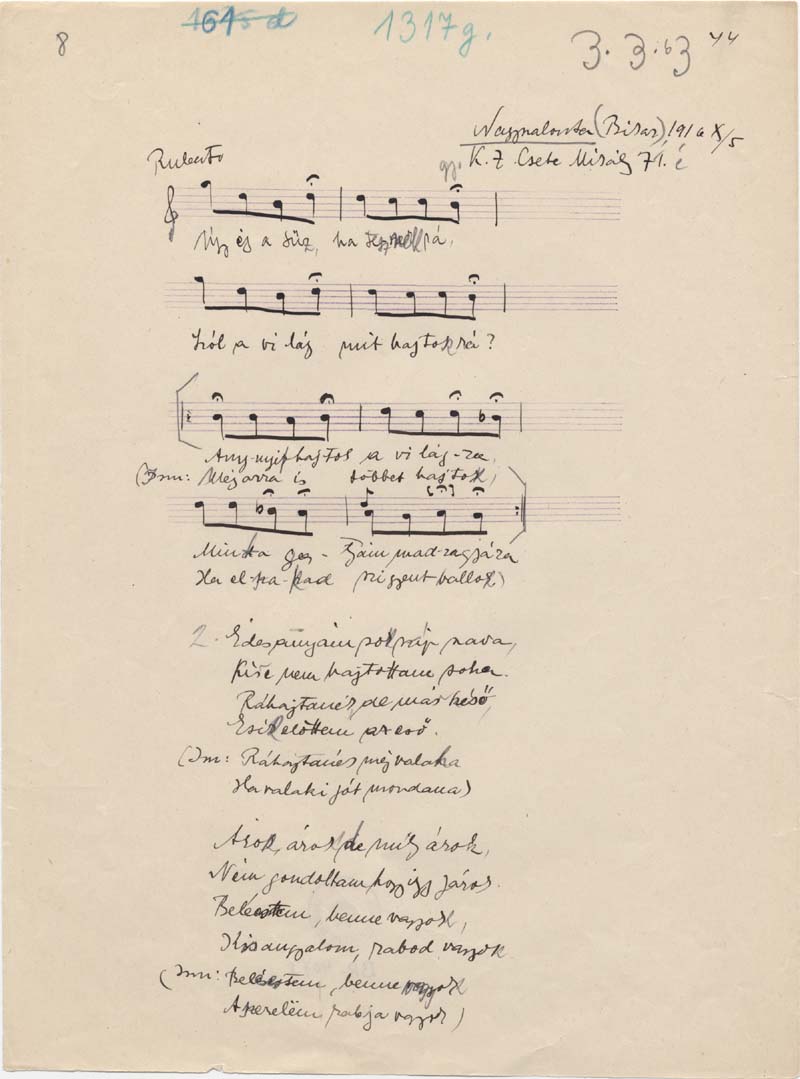 8 1615 d 1317g. 3. 3. 63 44
Nagyszalonta (Bihar) 1916 X/5
Rubato gy. K. Z. Csete Mihály 71. é
Úgy ég a tűz, ha tesznek rá,
Szól a világ mit hajtok rá?
Anynyit hajtok a világ-ra,
(Ism: Még arra is többet hajtok,
Mint a ga-tyám mad-zagjára
Ha el-sza-kad viszent vallok)
2. Édesanyám sok szép szava,
Kire nem hajtottam soha.
Ráhajtanék, de már késő,
Esik előttem az eső.
(Ism: Ráhajtanék még valaha
Ha valaki jót mondana)
Árok, árok, de mély árok,
Nem gondoltam hogy így járok.
Beléestem, benne vagyok,
Kisangyalom, rabod vagyok
(Ism: Beléestem, benne vagyok
A szerelëm rabja vagyok)